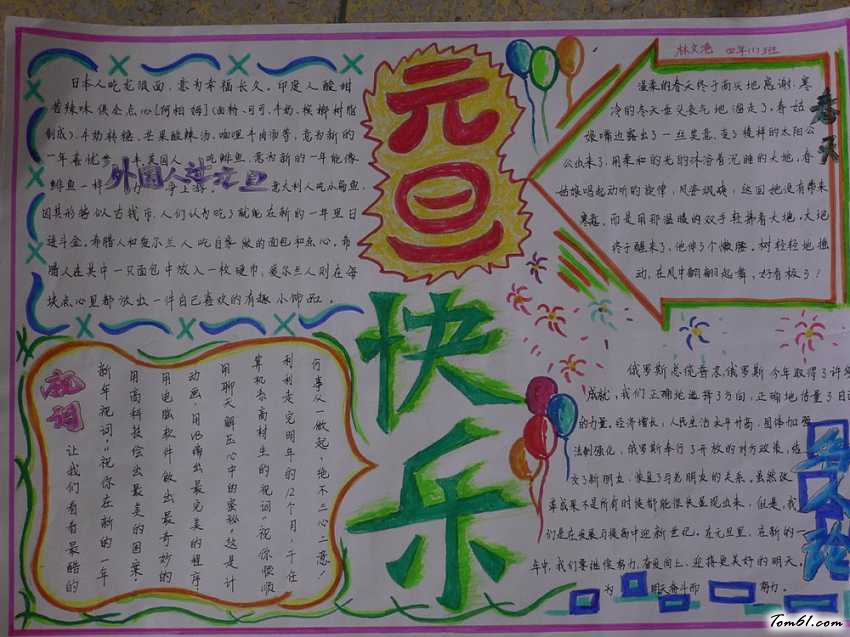 林文港 四年(1)班
元旦
快乐
日本人吃龙须面,意为幸福长久。印度人酸甜
苦辣味俱全点心[阿相姆](面粉、可可、牛奶、
制成)、牛奶转糖、芒果酸辣汤、咖哩牛肉汤等,意为新的
吃鲱鱼,意为新的一年能像
鲱鱼一样 争上游。 意大利人吃小扁鱼,
因其形酷似古钱币,人们认为吃了就能在新的一年里日
进斗金。希腊人和爱尔兰人吃自家做的面包和点心。希
腊人在其中一只面包中放入一枚硬币,爱尔兰人则在每
块点心里都放出一件自己喜欢的有趣小饰品。
外国人过元旦
春天
温柔的春天终于而
冷的冬天垂头丧气地溜走了。春姑
娘嘴边露出了一丝笑意,变了模样的太阳公
公也来了,用柔和的光的沐浴着沉睡的大地,春
姑娘唱起动听的旋律,风姿飒飒,这回她没有带来
寒意,而是用那温暖的双手轻拂着大地,大地
终于醒来了,他伸了个懒腰。树轻轻地摇
动,在风中翩翩起舞,好看极了!
祝词
让我们看看最酷的
新年祝词:“祝你在新的一年
用高科技绘出最美的图案,
用电脑软件做出最奇妙的
动画,用VB编出最完美的程序,
用聊天解压心中的蜜秘。”这是计
算机系高材生的祝词:“祝你顺顺
利利走完明年的12个月,千任
何事从一做起,绝不三心二意!
俄罗斯总统普京:俄罗斯今年取得了许多
成就,我们正确地选择了方向,正确地估量了自己
的力量。经济增长,人民生活水平升高,国体加强
法制强化,俄罗斯奉行了开放的对方政策,结
交了新朋友,恢复了与老朋友的关系。虽然改
革成果不是所有时候都能很快显现出来,但是,我
们是在发展与提高中迎新世纪。在元旦里,在新的一
年中,我们要继续努力,奋发向上,迎接更美好的明天。
为 明天奋斗而 努力。
Tom61.com